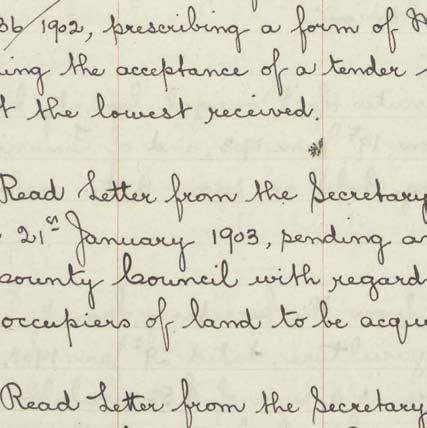 36 1902, prescribing a form of
ing the acceptance of a tender
t the lowest received.
Read Letter from the Secretary
21st January 1903, pending a
county Council with regard
occupiers of land to be acqu
Read Letter from the Secretary